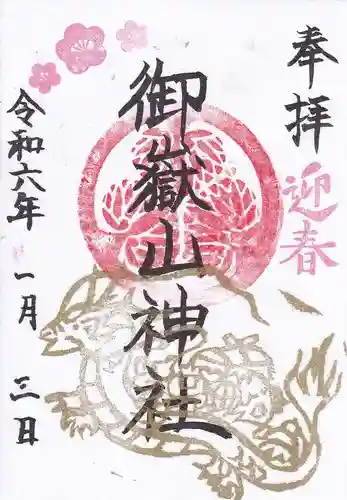 奉拝
迎春
御嶽山神社
令和六年 一月 三日